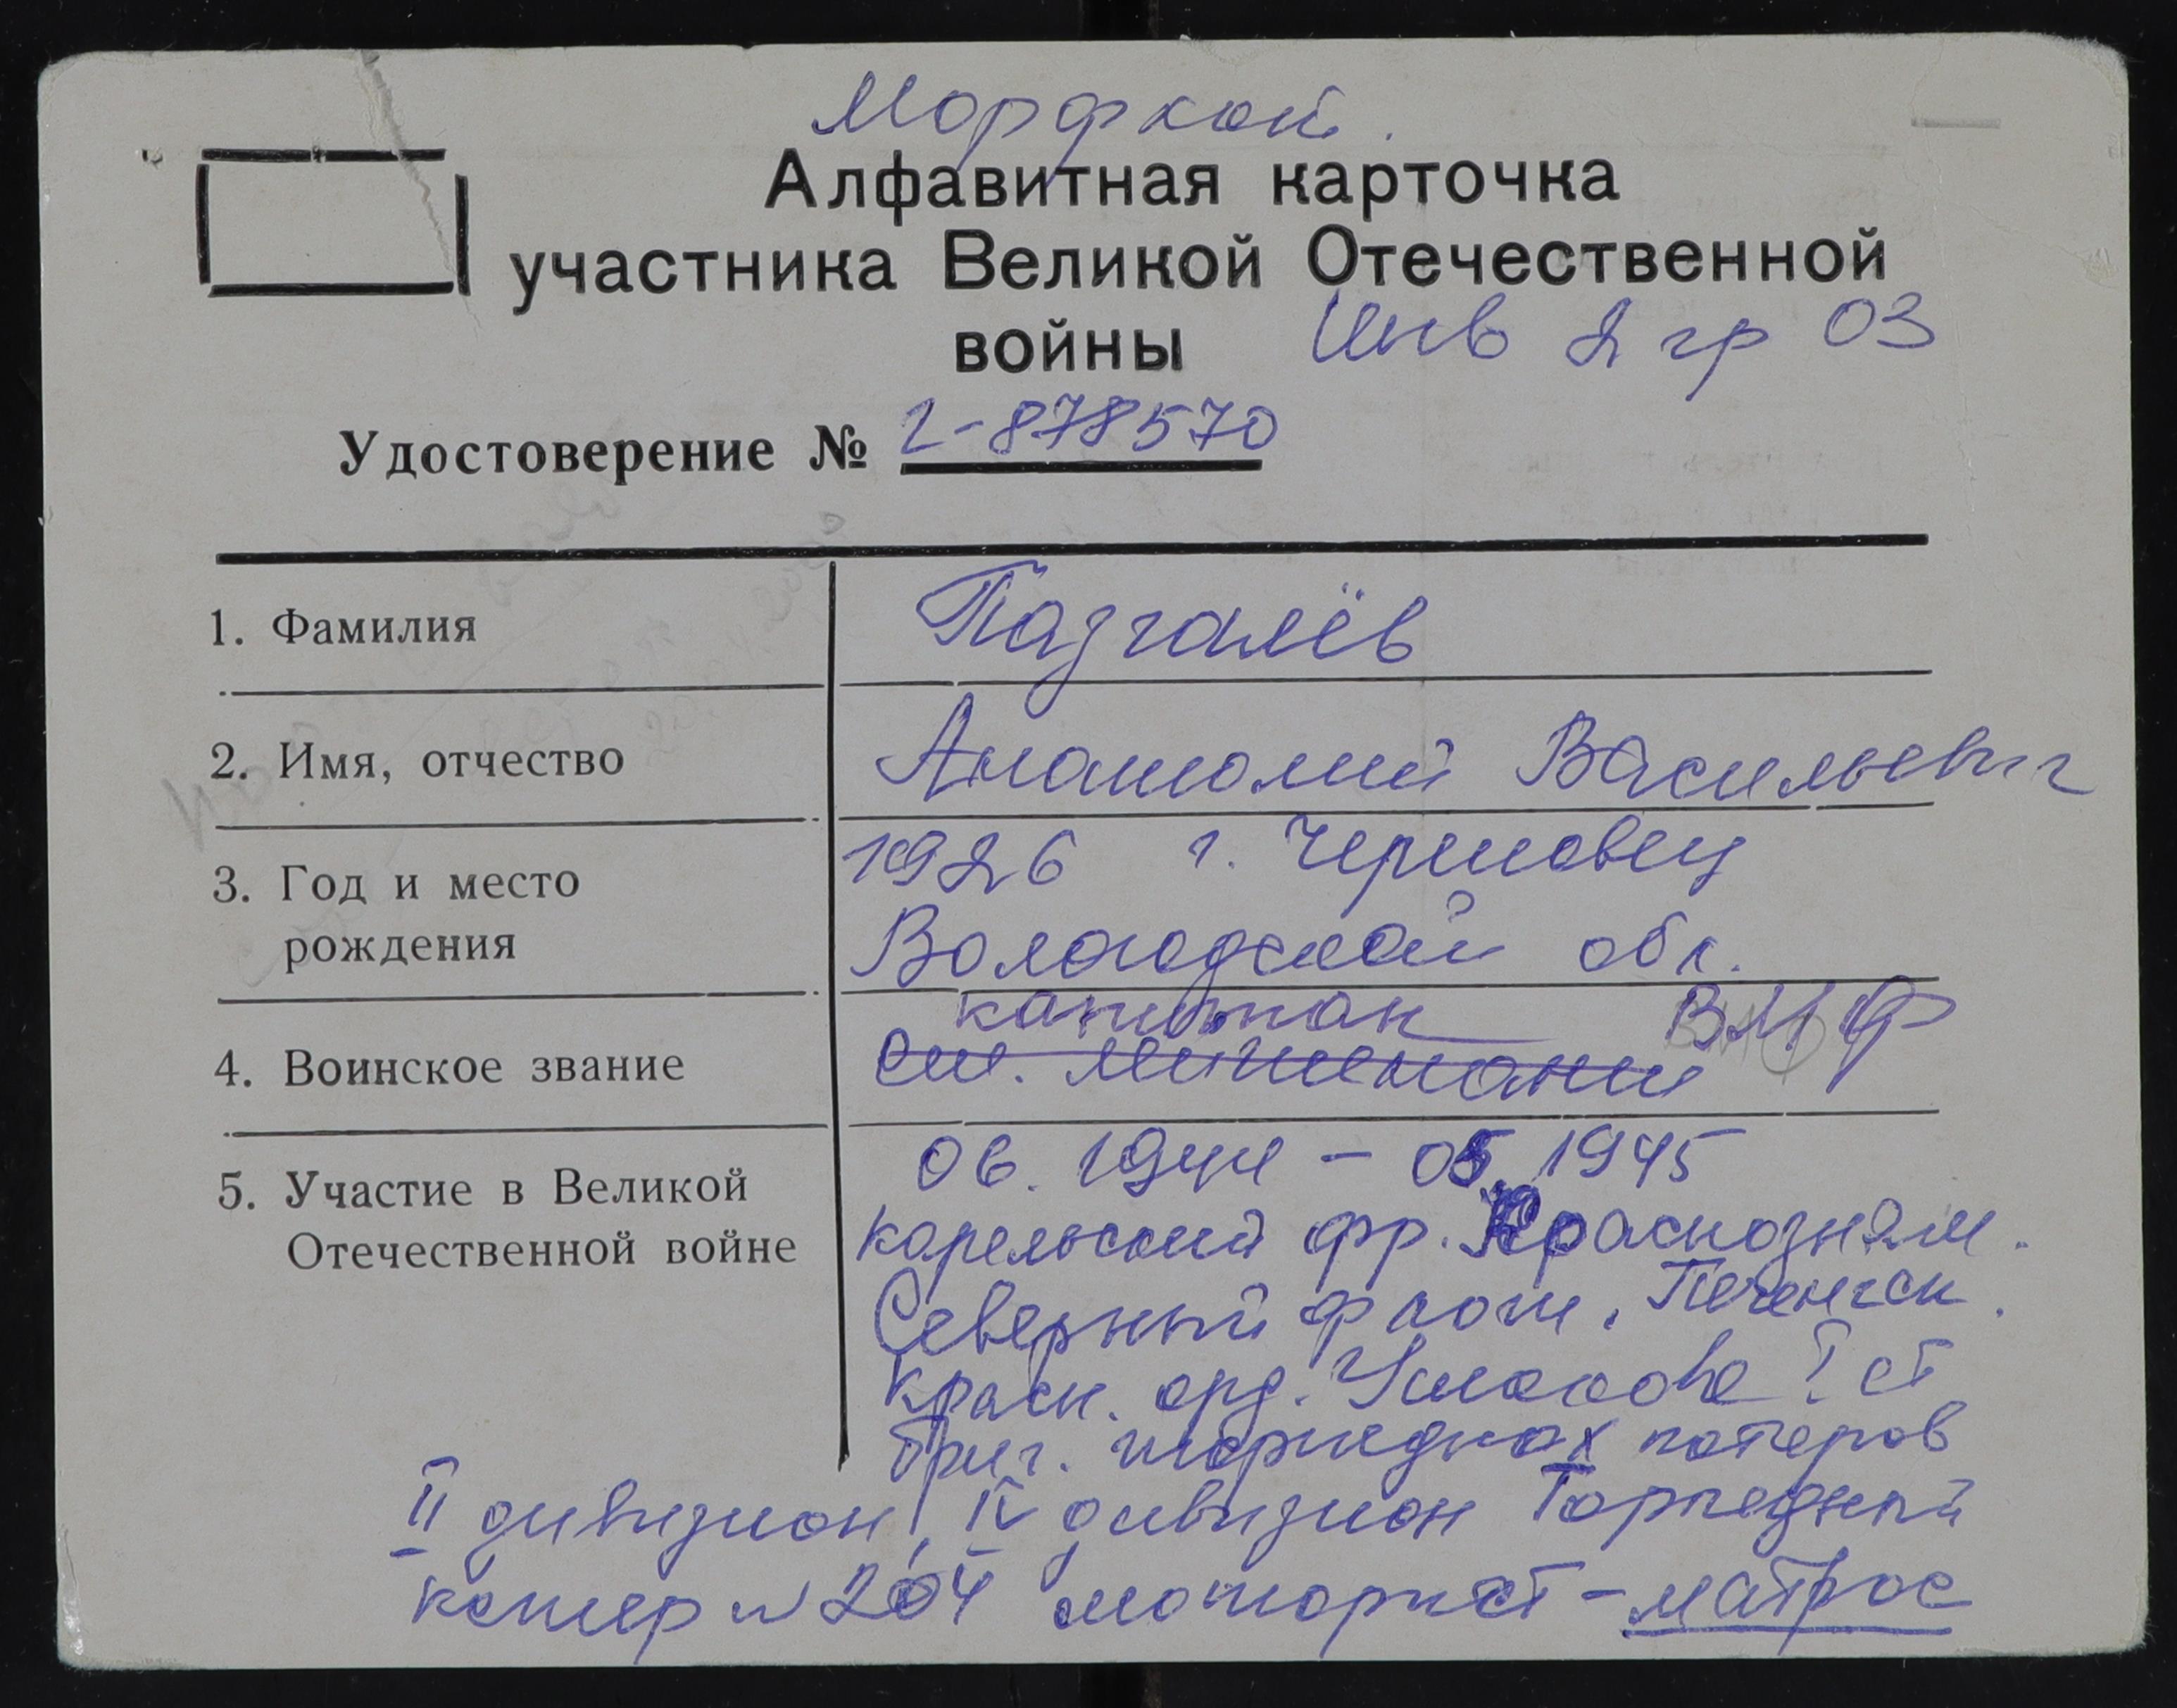 Морфкой.
Алфавитная карточка
участника Великой Отечественной
войны Инв 2 гр 03
Удостоверение № 2-878570
1. Фамилия Пазгалёв
2. Имя, отчество Анатолий Васильевич
3. Год и место 1926 г. Череповец
рождения Вологодской обл.
капитан ВМФ
4. Воинское звание ст. лейтенант
06. 1944 - 05. 1945
5. Участие в Великой
Отечественной войне Карельский фр. Краснознам.
Северный флот, Печенгск.
красн. орд. Ушакова I ст
бриг. торпедных катеров
II дивизион, IV дивизион Торпедный
катер № 204 моторист - матрос